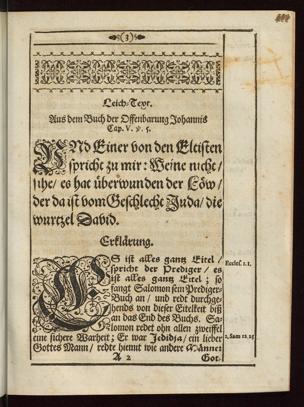 (3)
Leich-Text.
Aus dem Buch der Offenbarung Johannis
Cap. V. v. 5.
UNd Einer von den Eltisten
spricht zu mir: Weine nicht/
sihe/ es hat überwunden der Löw/
der da ist vom Geschlecht Juda/ die
wurtzel David.
Erklärung.
ES ist alles gantz Eitel/
spricht der Prediger/ es
ist alles gantz Eitel; so
fangt Salomon sein Prediger-
Buch an/ und redt durchge-
hends von dieser Eitelkeit biß
an das End des Buchs. Sa-
lomon redet ohn allen zweiffel
eine sichere Warheit; Er war Jedidja/ ein lieber
Gottes Mann/ redte hiemit wie andere Männer
A 2
Got-
Eccles. 1.1.
2. Sam 12.25